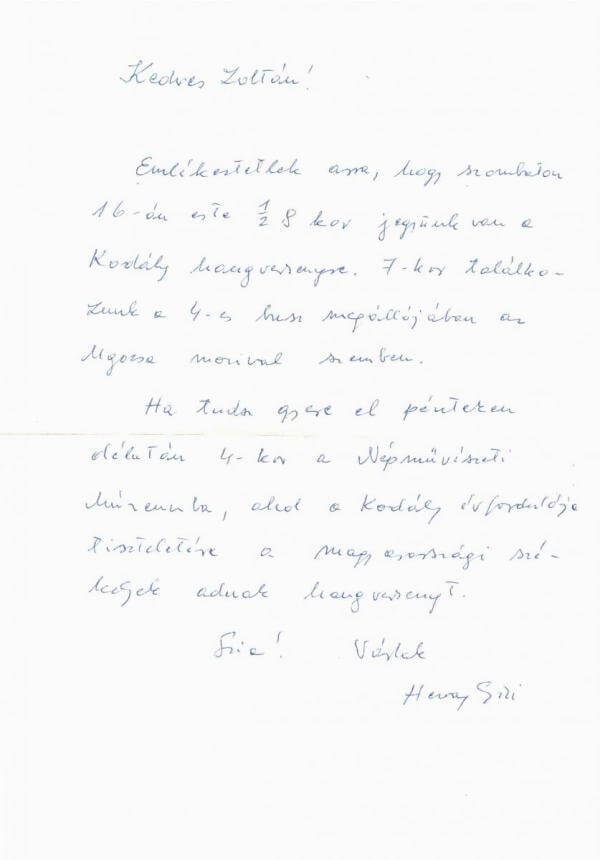 Kedves Zoltán!
Emlékeztetlek arra, hogy szombaton
16-án este 1/2 8 kor jegyünk van a
Kodály hangversenyre. 7-kor találko-
zunk a 4-es busz megállójában az
Ugocsa mozival szemben.
Ha tudsz gyere el pénteken
délután 4-kor a Népművészeti
Múzeumba, ahol a Kodály évfordulója
tiszteletére a magyarországi szé-
kelyek adnak hangversenyt.
Szia! Várlak